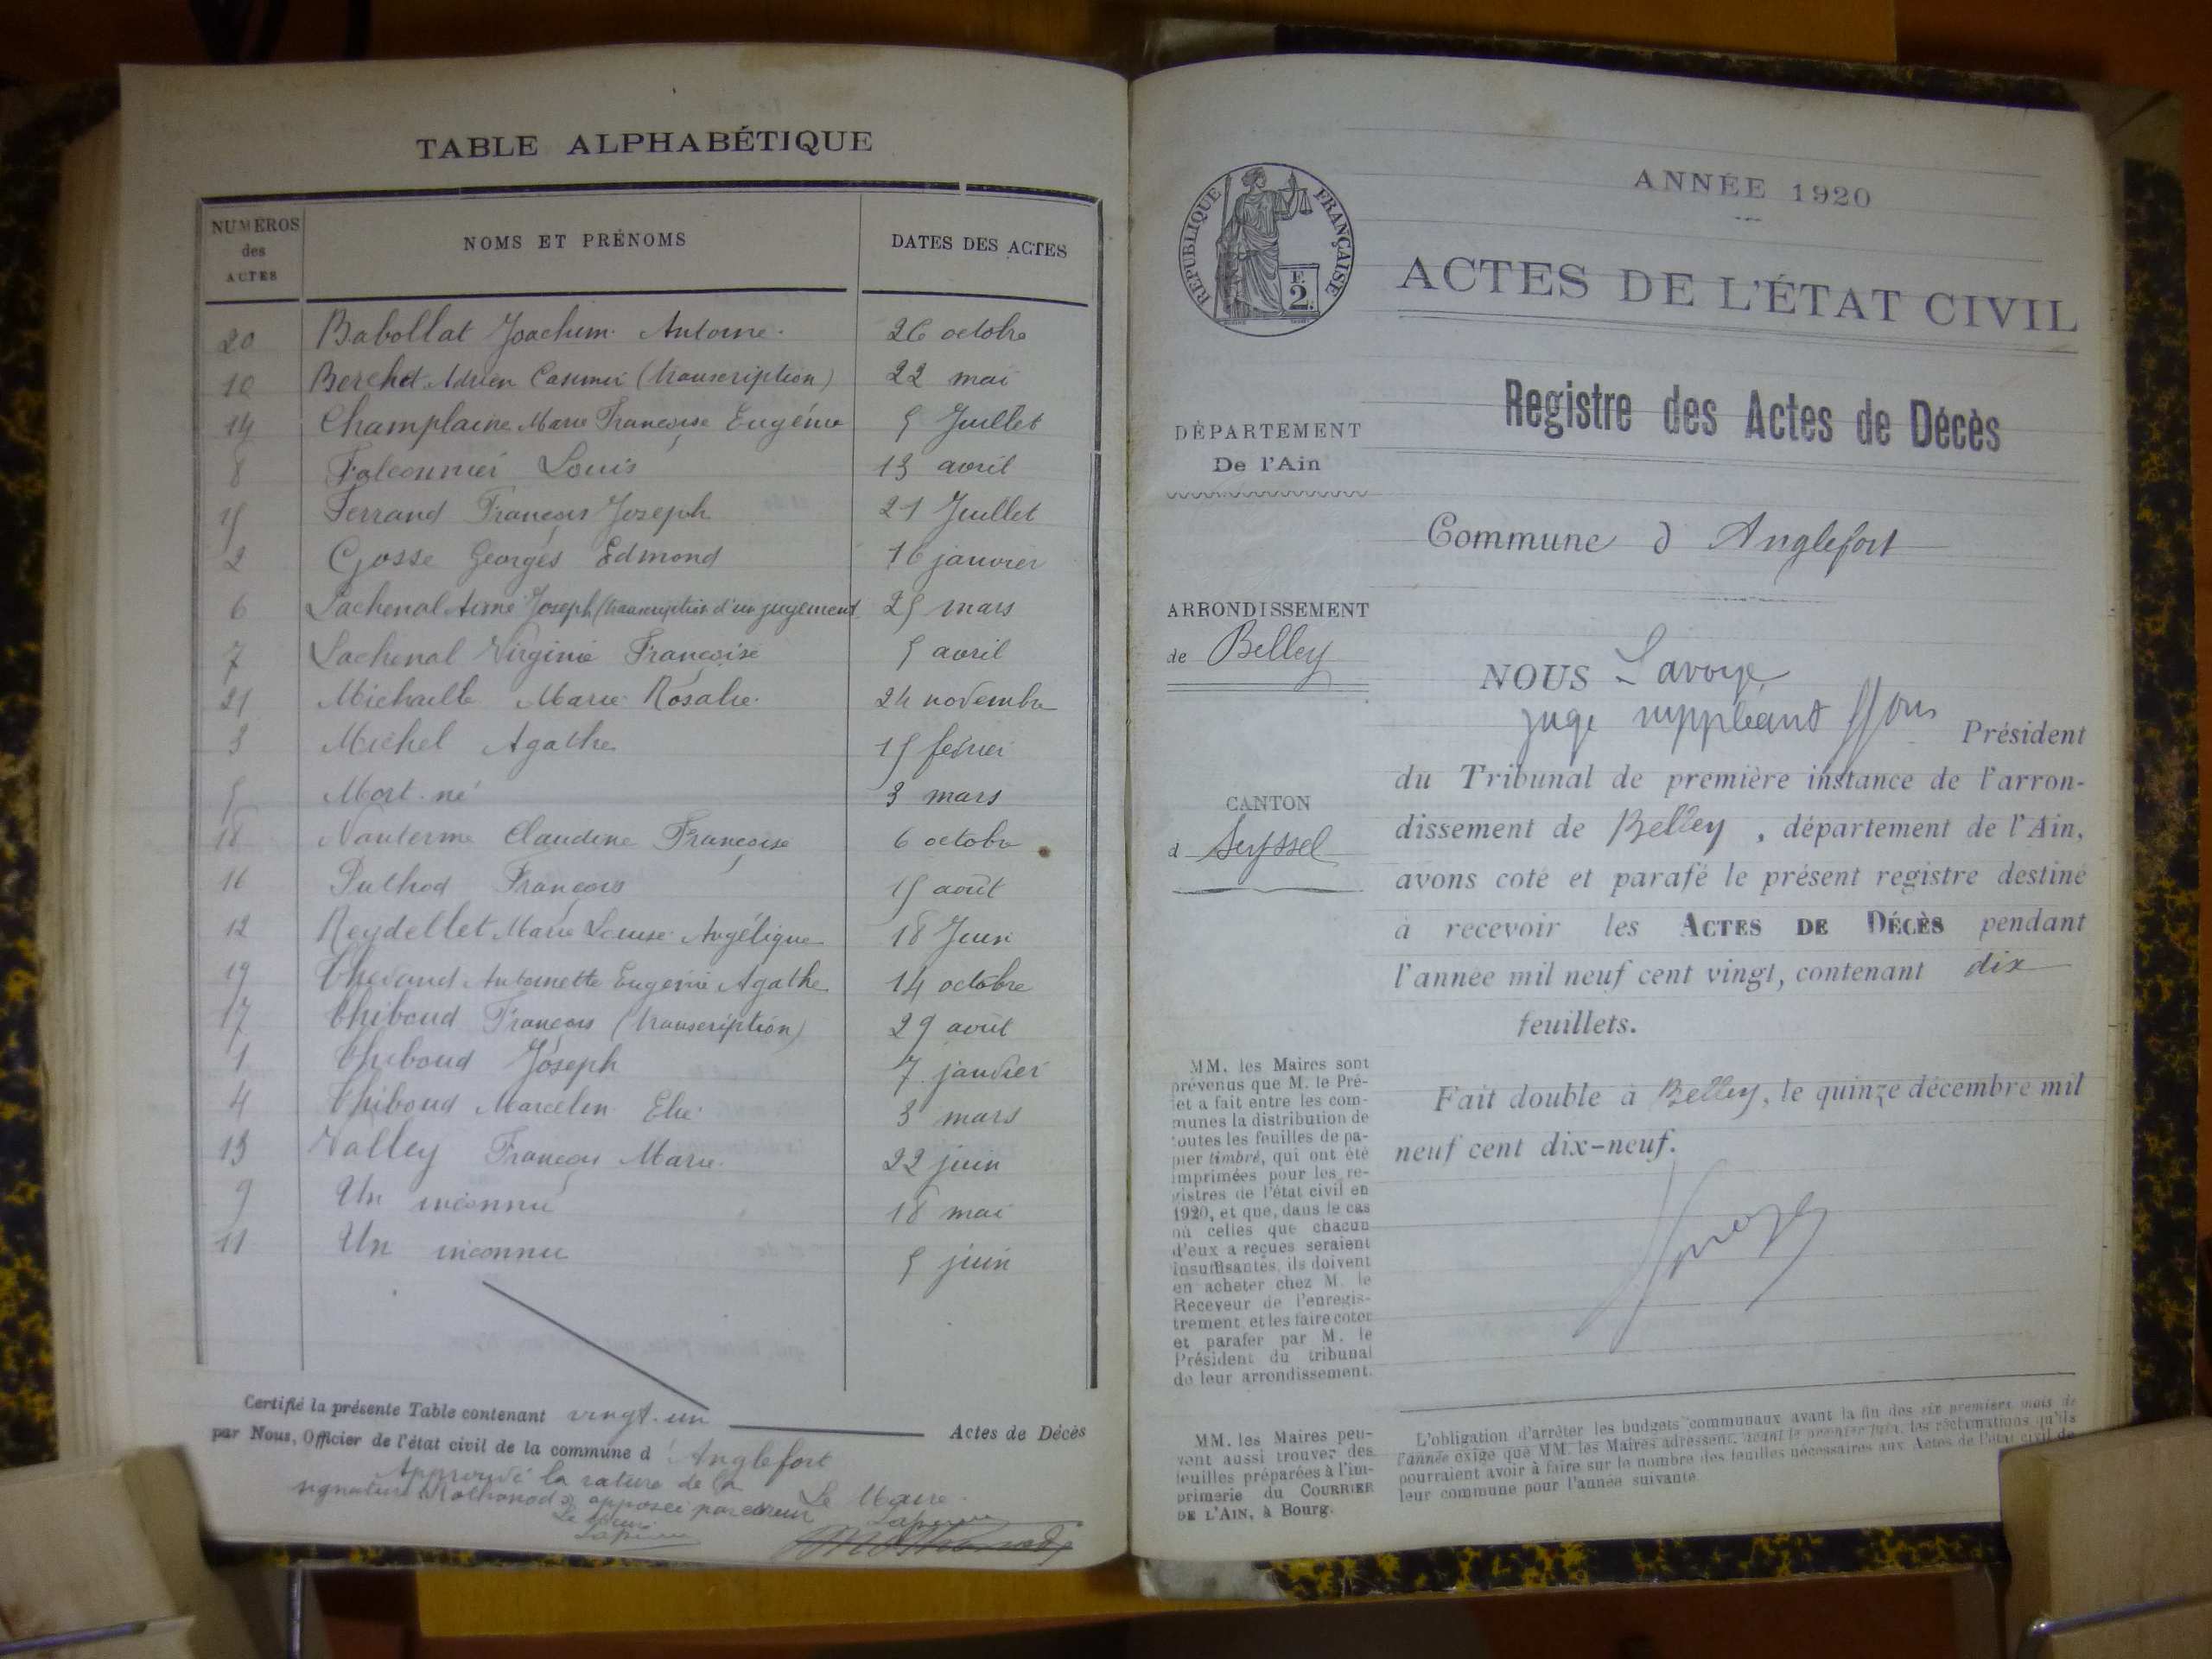 TABLE ALPHABÉTIQUE
NUMÉROS
des
ACTES
NOMS ET PRÉNOMS
DATES DES ACTES
20 Babollat Joachim Antoine 26 octobre
10 Berchet Adrien Casimir (transcription) 22 mai
14 Champlaine Marie Françoise Eugénie 5 Juillet
8 Falconnier Louis 13 avril
15 Ferrand François Joseph 21 Juillet
2 Gosse Georges Edmond 16 janvier
6 Lachenal Aimé Joseph (transcription d'un jugement 25 mars
7 Lachenal Virginie Françoise 5 avril
21 Michaille Marie Rosalie 24 novembre
3 Michel Agathe 15 février
5 Mort-né 3 mars
18 Nanterme Claudine Françoise 6 octobre
16 Puthod François 15 août
12 Reydellet Marie Louise Angélique 18 Juin
19 Thevaud Antoinette Eugénie Agathe 14 octobre
17 Thiboud François (transcription) 29 août
1 Thiboud Joseph 7 janvier
4 Thiboud Marcelin Elie 3 mars
13 Valley François Marie 22 juin
9 Un inconnu 18 mai
11 Un inconnu 5 juin
Certifié la présente Table contenant vingt-un Actes de Décès
par Nous, Officier de l'état civil de la commune d'Anglefort
Approuvé la rature de la
signature apposée par erreur
Le Maire
Le Maire
ANNÉE 1920
RÉPUBLIQUE FRANÇAISE
E.
2.
ACTES DE L'ÉTAT CIVIL
Registre des Actes de Décès
DÉPARTEMENT
De l'Ain
Commune d'Anglefort
ARRONDISSEMENT
de Belley
NOUS Lavoye
juge suppléant ffons Président
du Tribunal de première instance de l'arron-
dissement de Belley, département de l'Ain,
avons coté et parafé le présent registre destiné
à recevoir les ACTES DE DÉCÈS pendant
l'année mil neuf cent vingt, contenant dix
feuillets.
Fait double à Belley, le quinze décembre mil
neuf cent dix-neuf.
CANTON
d Seyssel
MM. les Maires sont
prévenus que M. le Pré-
fet a fait entre les com-
munes la distribution de
toutes les feuilles de pa-
pier timbré, qui ont été
imprimées pour les re-
gistres de l'état civil en
1920, et que, dans le cas
où celles que chacun
d'eux a reçues seraient
insuffisantes, ils doivent
en acheter chez M. le
Receveur de l'enregis-
trement et les faire coter
et parafer par M. le
Président du tribunal
de leur arrondissement.
MM. les Maires peu-
vent aussi trouver des
feuilles préparées à l'im-
primerie du COURRIER
DE L'AIN, à Bourg.
L'obligation d'arrêter les budgets communaux avant la fin des six premiers mois de
l'année exige que MM. les Maires adressent, avant le premier juin, les réclamations qu'ils
pourraient avoir à faire sur le nombre des feuilles nécessaires aux Actes de l'état civil de
leur commune pour l'année suivante.